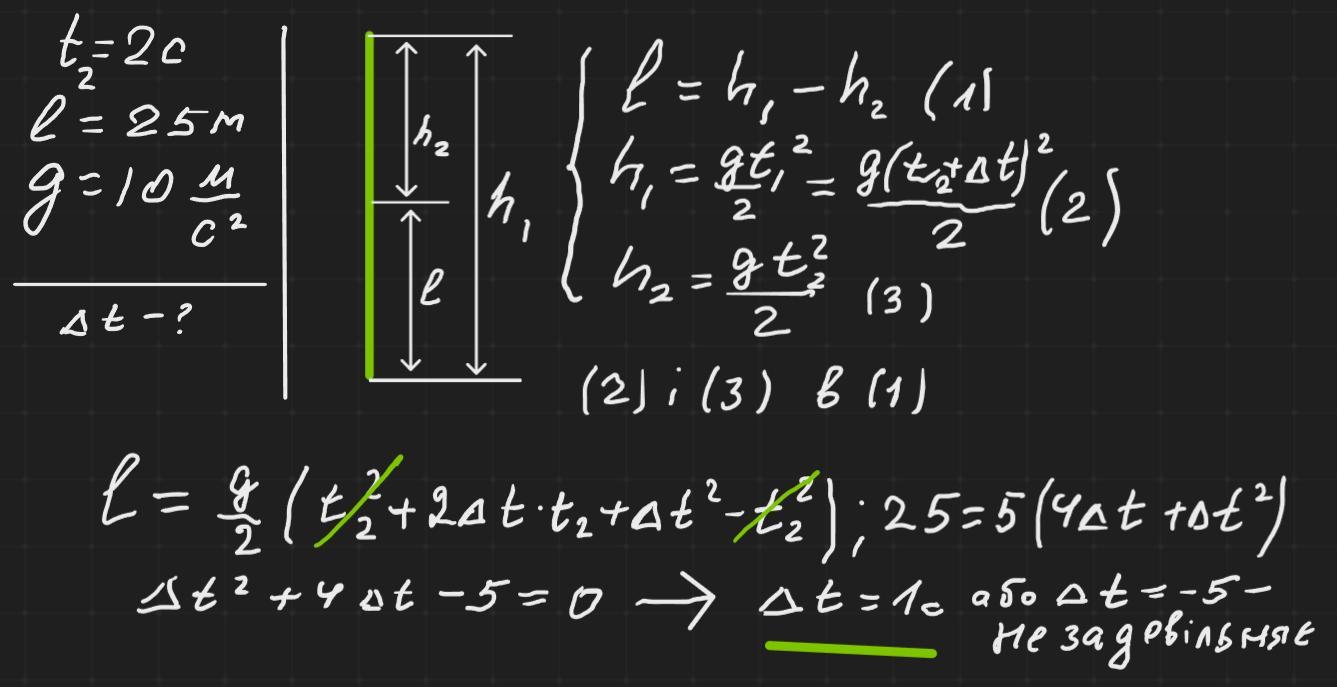 t₂=2с
l = 25м
g=10 м/с²
Δt-?
h₂
l
h₁
l = h₁ - h₂ (1)
h₁ = gt₁²/2 = g(t₂+Δt)²/2 (2)
h₂ = gt₂²/2 (3)
(2) і (3) в (1)
l = g/2 (t₂²+2Δt·t₂+Δt²-t₂²); 25=5(4Δt+Δt²)
Δt²+4Δt-5=0 → Δt=1с або Δt=-5-
не задовільняє